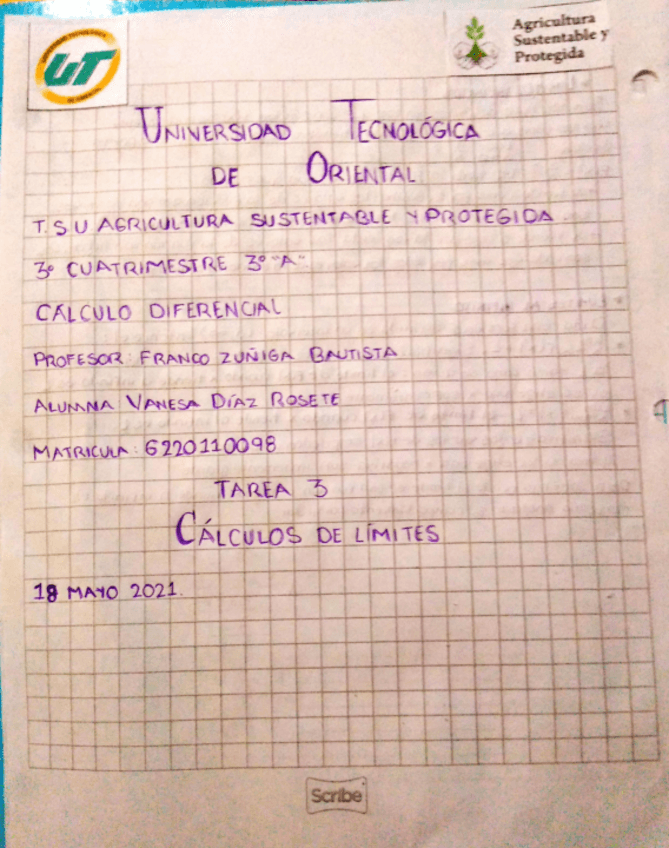 UNIVERSIDAD TECNOLÓGICA
UT
DE ORIENTAL
Agricultura
Sustentable y
Protegida
UNIVERSIDAD TECNOLÓGICA
DE ORIENTAL
T.S U AGRICULTURA SUSTENTABLE Y PROTEGIDA
3º CUATRIMESTRE 3º "A"
CÁLCULO DIFERENCIAL
PROFESOR: FRANCO ZUÑIGA BAUTISTA
ALUMNA VANESA DÍAZ ROSETE
MATRICULA: 6220110098
TAREA 3
CÁLCULOS DE LÍMITES
18 MAYO 2021.
Scribe